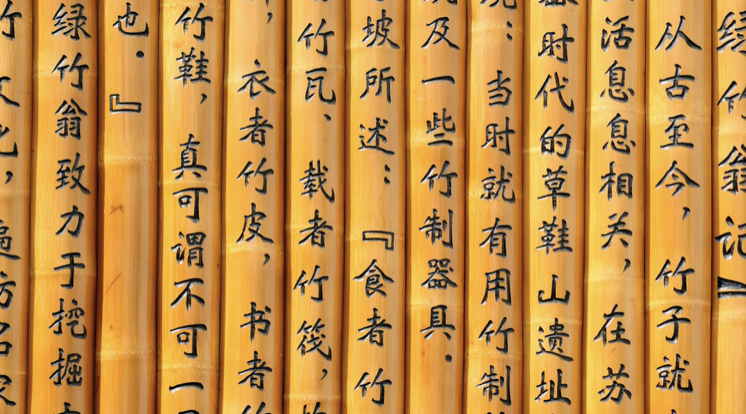 绿竹翁记】
从古至今，竹子就
活息息相关，在苏
器时代的草鞋山遗址
：当时就有用竹制
及一些竹制器具.
坡所述：『食者竹
竹瓦、载者竹筏，
，衣者竹皮，书者
竹鞋，真可谓不可一
也.』
绿竹翁致力于挖掘
竹文化，遍访名家